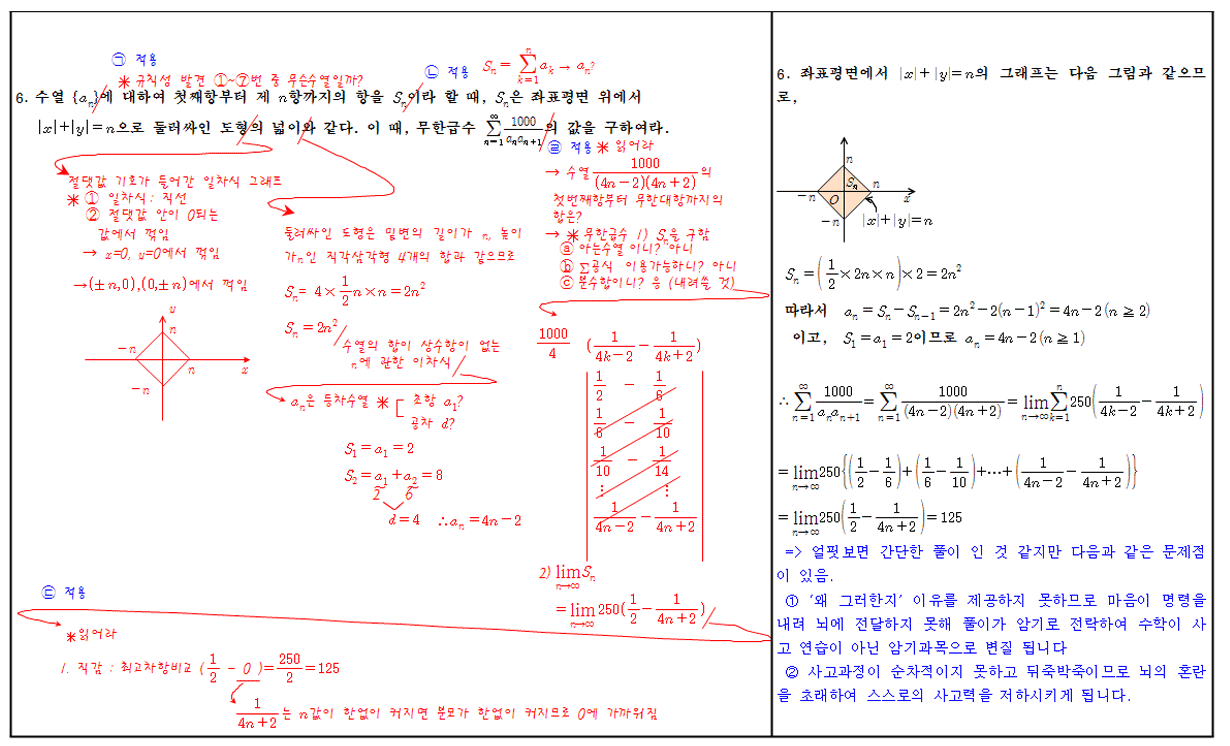 ㉠ 적용
＊규칙성 발견 ①~⑦번 중 무슨수열일까?
㉡ 적용 Sₙ = ∑_{k=1}^{n} aₖ → aₙ?
6. 수열 {aₙ}에 대하여 첫째항부터 제 n항까지의 항을 Sₙ이라 할 때, Sₙ은 좌표평면 위에서
|x|+|y|=n으로 둘러싸인 도형의 넓이와 같다. 이 때, 무한급수 ∑_{n=1}^{∞} 1000/(aₙaₙ₊₁) 의 값을 구하여라.
절댓값 기호가 들어간 일차식 그래프
＊① 일차식: 직선
② 절댓값 안이 0되는
값에서 꺾임
→ x=0, y=0에서 꺾임
→(±n,0),(0,±n)에서 꺾임
y
n
−n
n
x
−n
둘러싸인 도형은 밑변의 길이가 n, 높이
가n인 직각삼각형 4개의 합과 같으므로
Sₙ= 4×1/2 n×n=2n²
Sₙ=2n²
수열의 합이 상수항이 없는
n에 관한 이차식
aₙ은 등차수열 ＊[ 초항 a₁?
공차 d?
S₁=a₁=2
S₂=a₁+a₂=8
2 6
d=4 ∴aₙ=4n−2
㉣ 적용 ＊읽어라
→ 수열 1000/((4n−2)(4n+2)) 의
첫번째항부터 무한대항까지의
합은?
→ ＊무한급수 1) Sₙ을 구함
ⓐ 아는수열 이니? 아니
ⓑ ∑공식 이용가능하니? 아니
ⓒ 분수합이니? 응 (내려쓸 것)
1000/4 (1/(4k−2) − 1/(4k+2))
1/2 − 1/6
1/6 − 1/10
1/10 − 1/14
⋮ ⋮
1/(4n−2) − 1/(4n+2)
2) lim_{n→∞} Sₙ
= lim_{n→∞} 250(1/2 − 1/(4n+2))
㉢ 적용
＊읽어라
1. 직감 : 최고차항비교 (1/2 − 0)=250/2=125
1/(4n+2) 는 n값이 한없이 커지면 분모가 한없이 커지므로 0에 가까워짐
6. 좌표평면에서 |x|+|y|=n의 그래프는 다음 그림과 같으므
로,
y
n
Sₙ
−n
O
n
x
−n
|x|+|y|=n
Sₙ=(1/2×2n×n)×2=2n²
따라서 aₙ=Sₙ−Sₙ₋₁=2n²−2(n−1)²=4n−2(n≧2)
이고, S₁=a₁=2이므로 aₙ=4n−2(n≧1)
∴ ∑_{n=1}^{∞} 1000/(aₙaₙ₊₁) = ∑_{n=1}^{∞} 1000/((4n−2)(4n+2)) = lim_{n→∞} ∑_{k=1}^{n} 250(1/(4k−2) − 1/(4k+2))
= lim_{n→∞} 250{(1/2−1/6)+(1/6−1/10)+⋯+(1/(4n−2)−1/(4n+2))}
= lim_{n→∞} 250(1/2 − 1/(4n+2))=125
=> 얼핏보면 간단한 풀이 인 것 같지만 다음과 같은 문제점
이 있음.
① '왜 그러한지' 이유를 제공하지 못하므로 마음이 명령을
내려 뇌에 전달하지 못해 풀이가 암기로 전락하여 수학이 사
고 연습이 아닌 암기과목으로 변질 됩니다
② 사고과정이 순차적이지 못하고 뒤죽박죽이므로 뇌의 혼란
을 초래하여 스스로의 사고력을 저하시키게 됩니다.